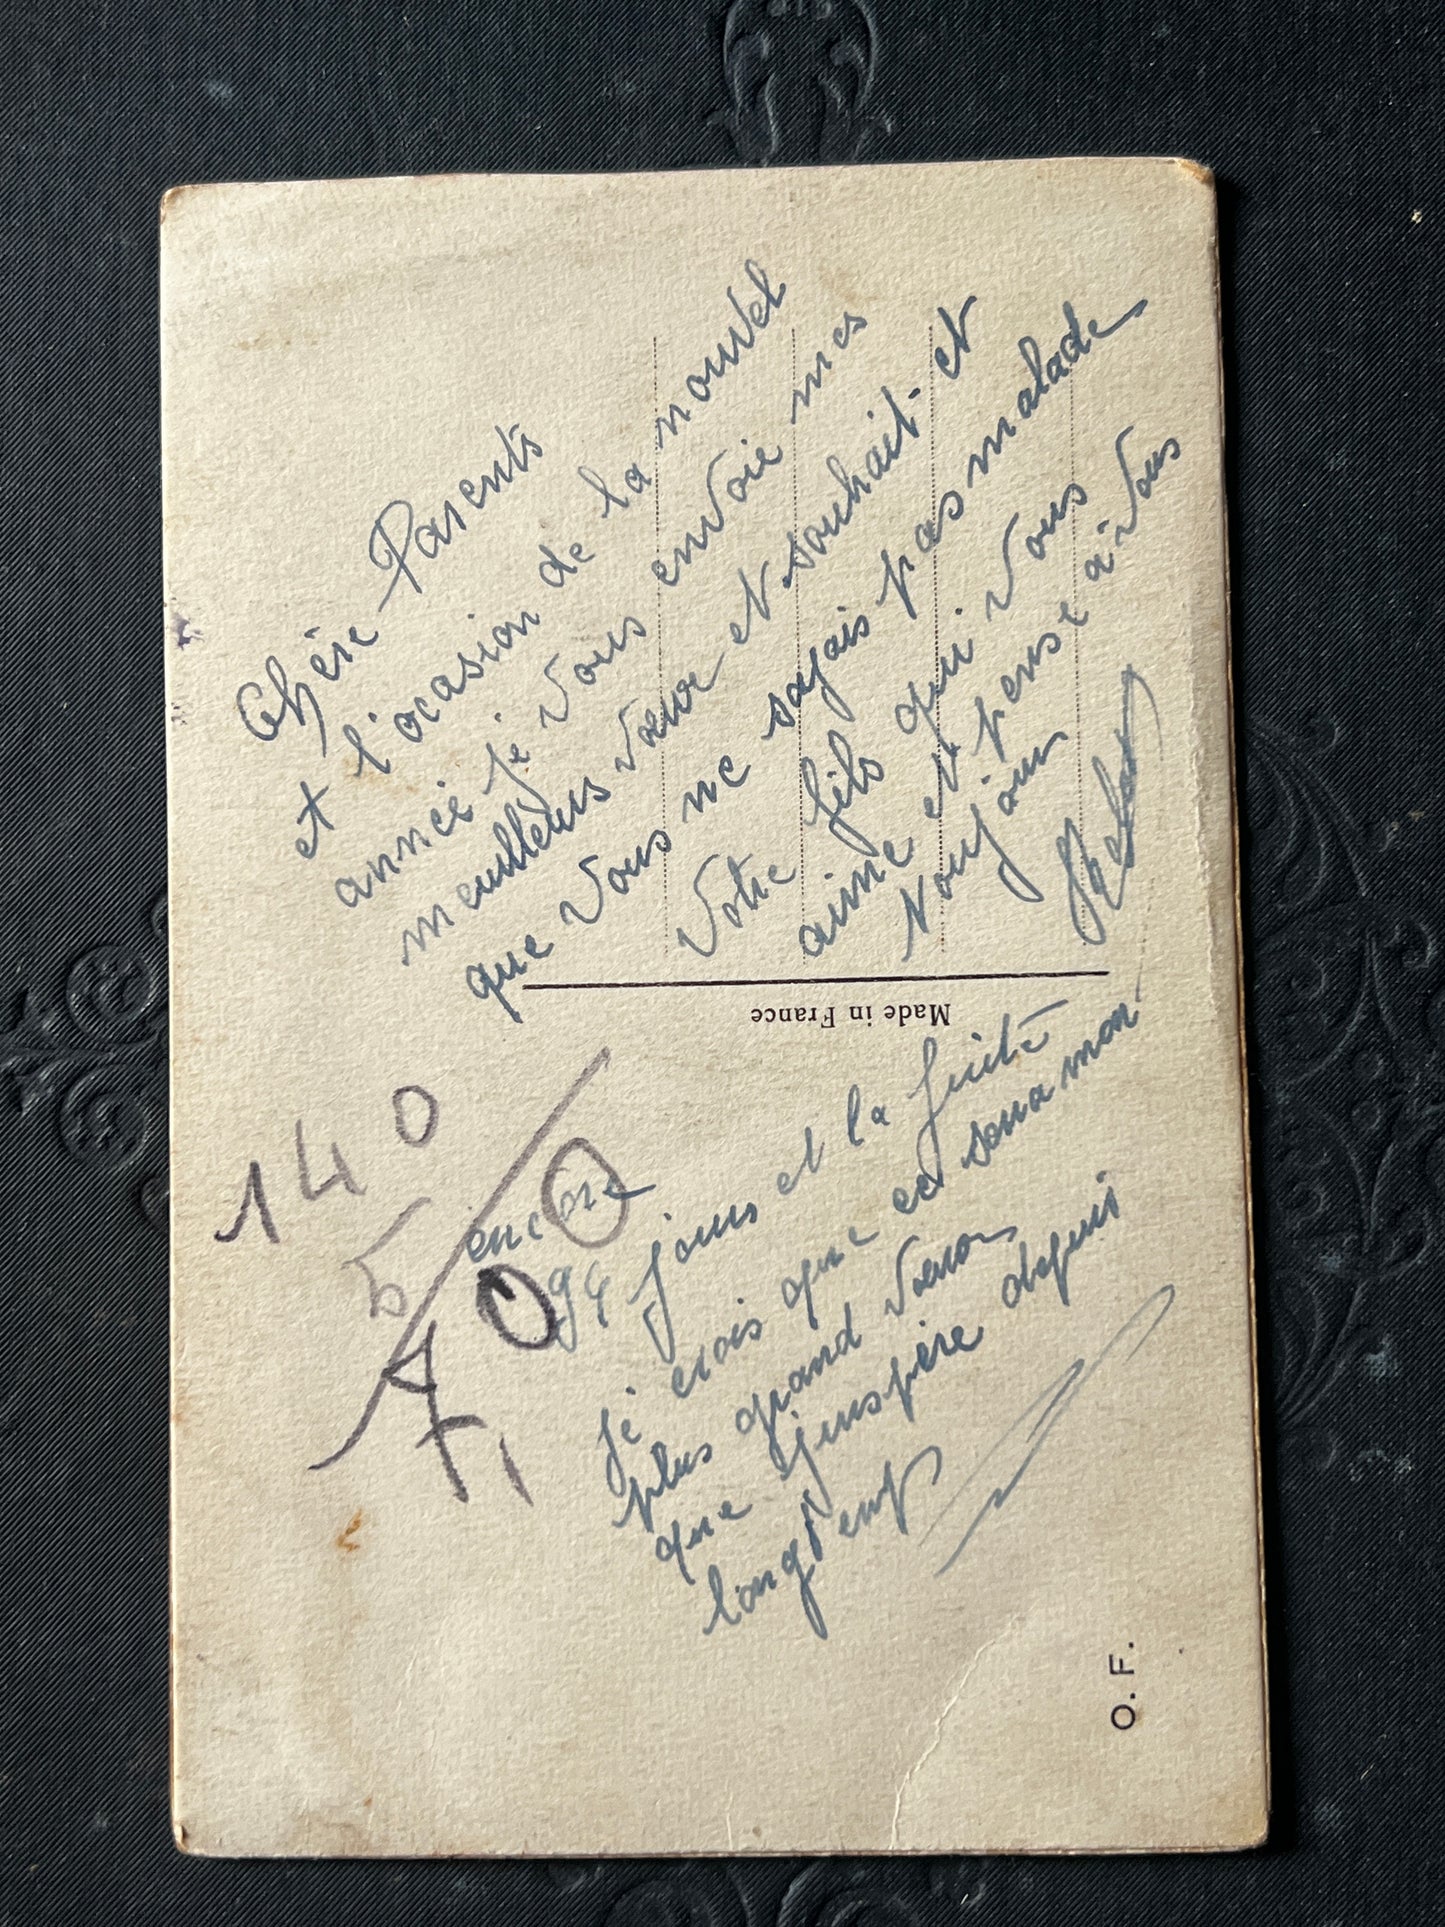 Chère Parents
et l'ocasion de la nouvel
année je vous envoie mes
meuilleurs voeux et souhait et
que vous ne soyais pas malade
Votre fils qui vous
aime et pense à vous
toujour
encore
94 jours et la fuite
je crois que ce sera mon
plus grand voeux
que j'euspère depuis
longtemps
140
5/0
70
Made in France
O. F.